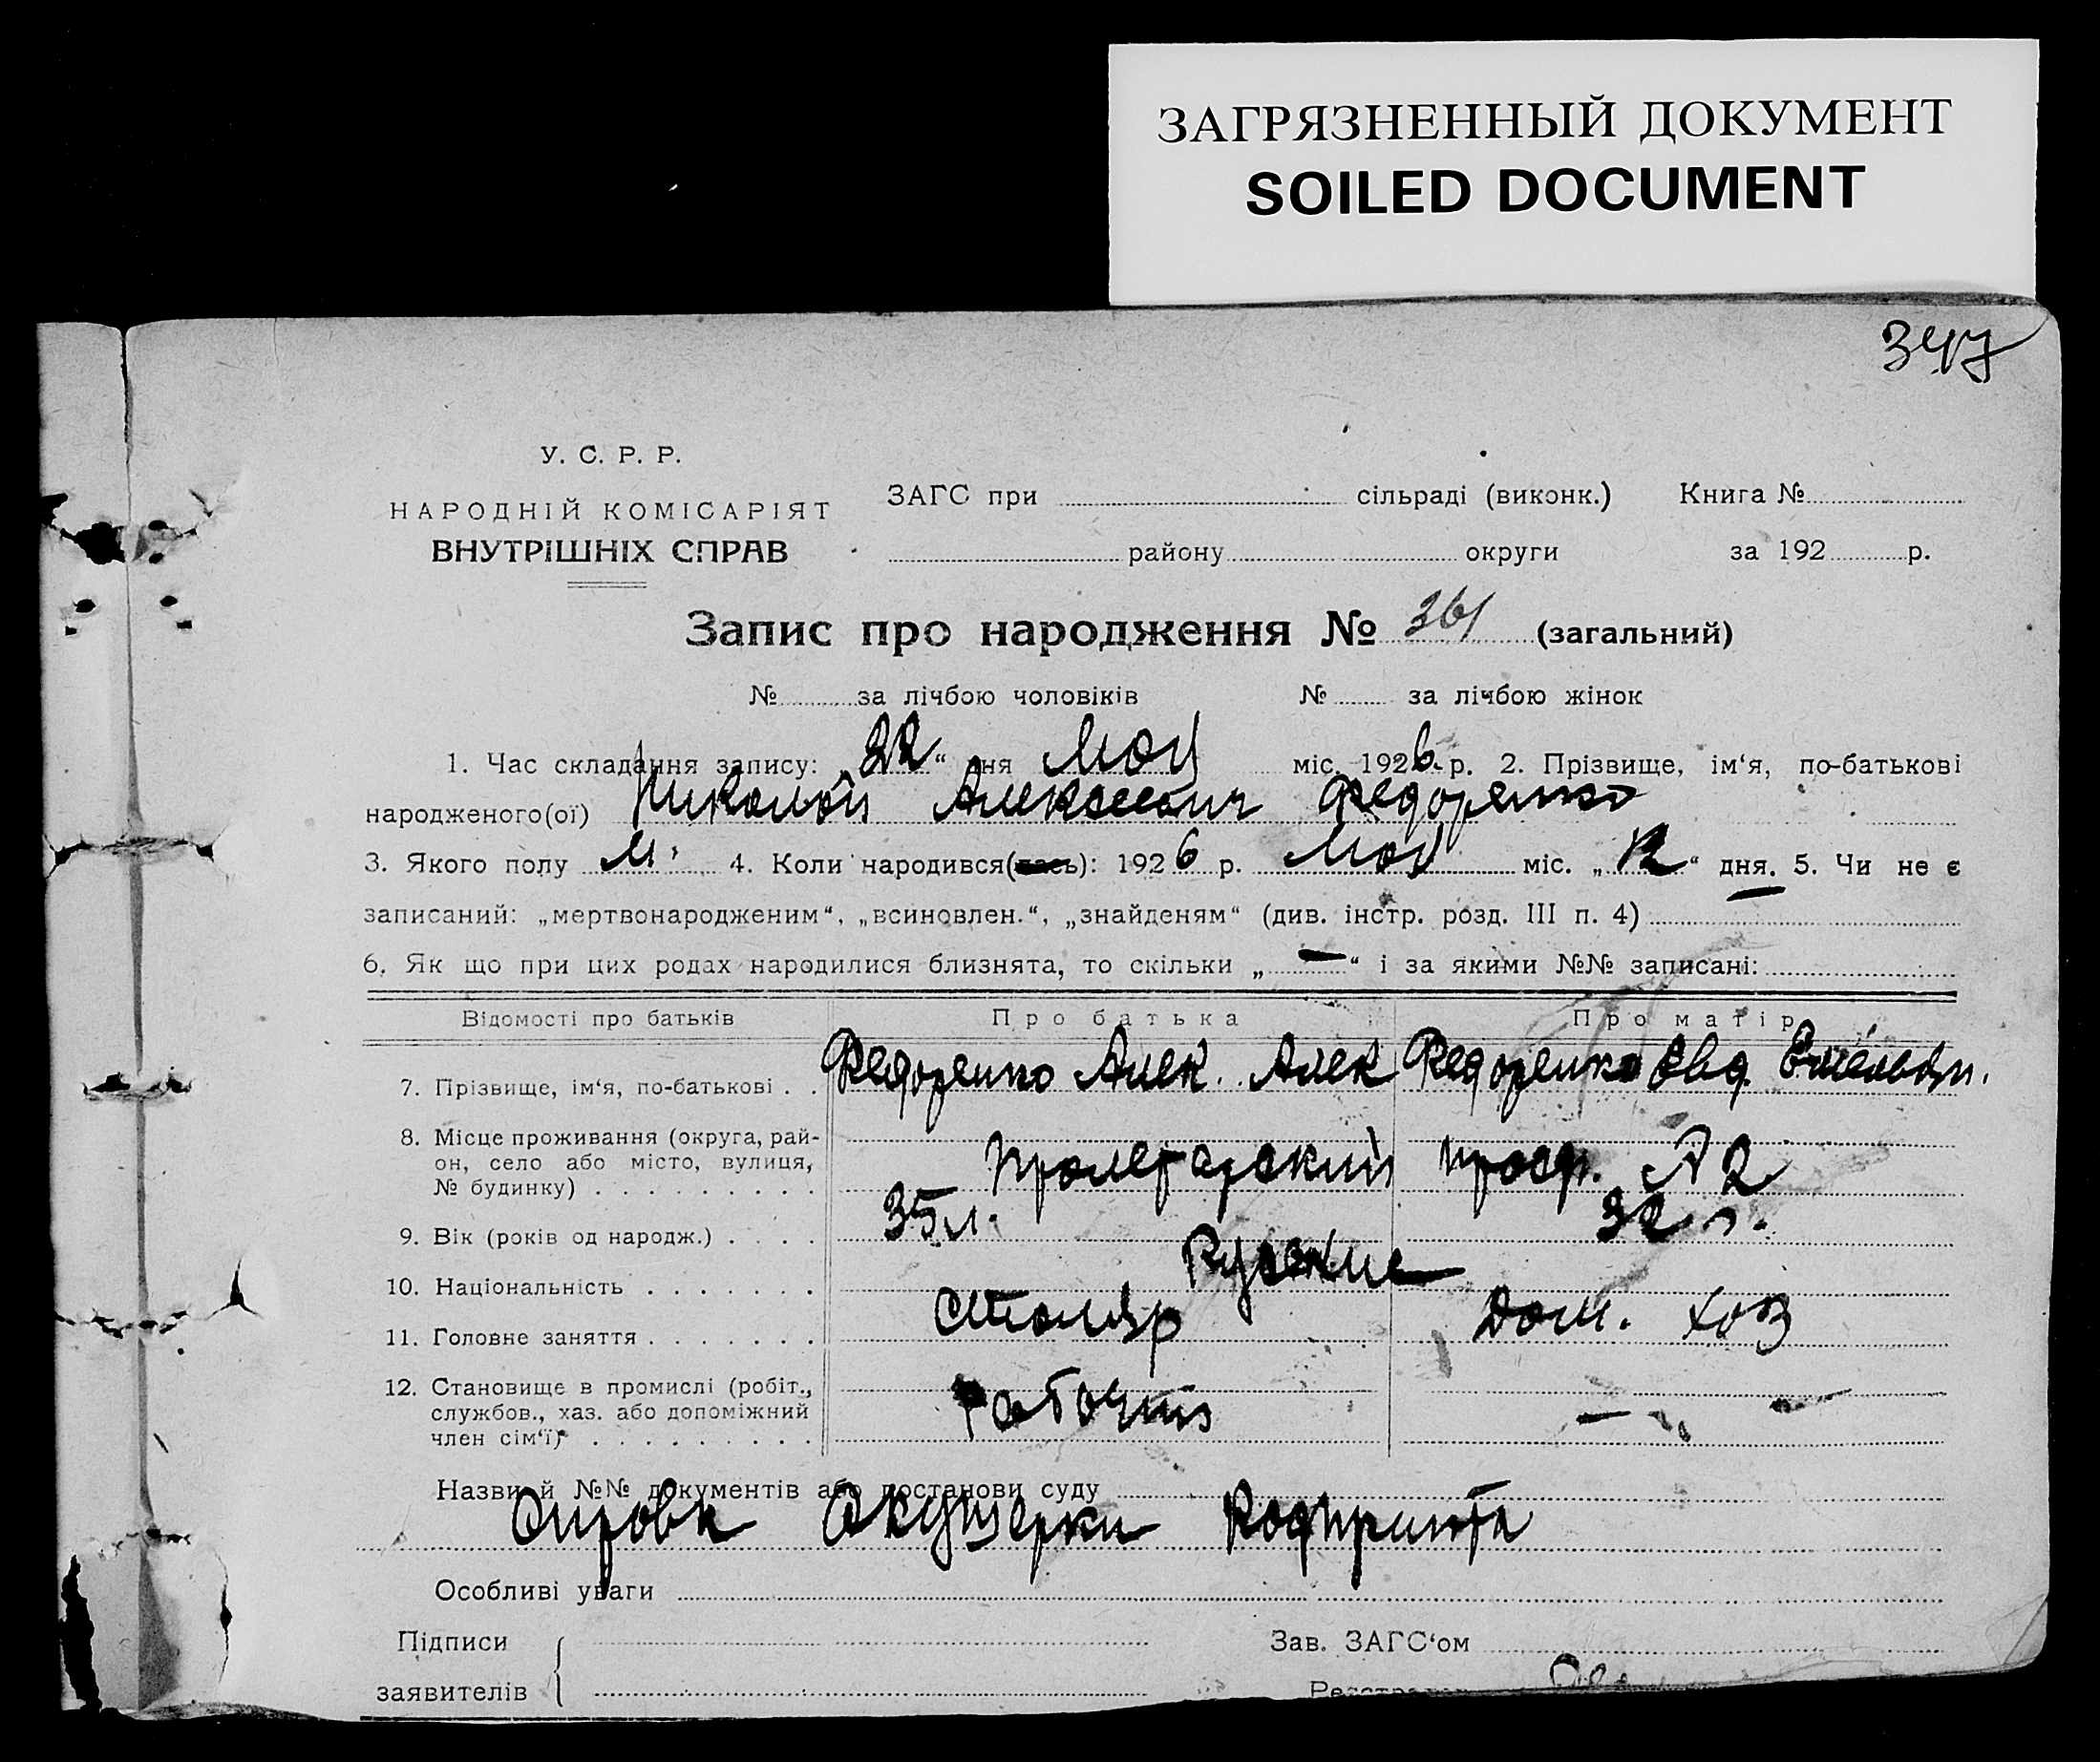 ЗАГРЯЗНЕННЫЙ ДОКУМЕНТ
SOILED DOCUMENT
347
У. С. Р. Р.
НАРОДНІЙ КОМІСАРІЯТ
ВНУТРІШНІХ СПРАВ
ЗАГС при сільраді (виконк.) Книга №
району округи за 192 р.
Запис про народження № 361 (загальний)
№ за лічбою чоловіків № за лічбою жінок
1. Час складання запису: „22“ дня Мая міс. 1926 р. 2. Прізвище, ім‘я, по-батькові
народженого(ої) Николай Алексеевич Федоренко
3. Якого полу м. 4. Коли народився(лась): 1926 р. Мая міс. „12“ дня. 5. Чи не є
записаний: „мертвонародженим“, „всиновлен.“, „знайденям“ (див. інстр. розд. III п. 4) —
6. Як що при цих родах народилися близнята, то скільки „—“ і за якими №№ записані:
Відомості про батьків Про батька Про матір
7. Прізвище, ім‘я, по-батькові . . Федоренко Алек. Алек Федоренко Евд. Емельян.
8. Місце проживання (округа, рай-
он, село або місто, вулиця,
№ будинку) . . . . . . . . . Пролетарский №2
9. Вік (років од народж.) . . . . 35 л. 32 л.
10. Національність . . . . . . . Русские
11. Головне заняття . . . . . . . столяр дом. хоз
12. Становище в промислі (робіт.,
службов., хаз. або допоміжний
член сім‘ї) . . . . . . . . . Рабочий — —
Назви й №№ документів або постанови суду
Справк Акушерки Родприюта
Особливі уваги
Підписи
заявителів
Зав. ЗАГС‘ом